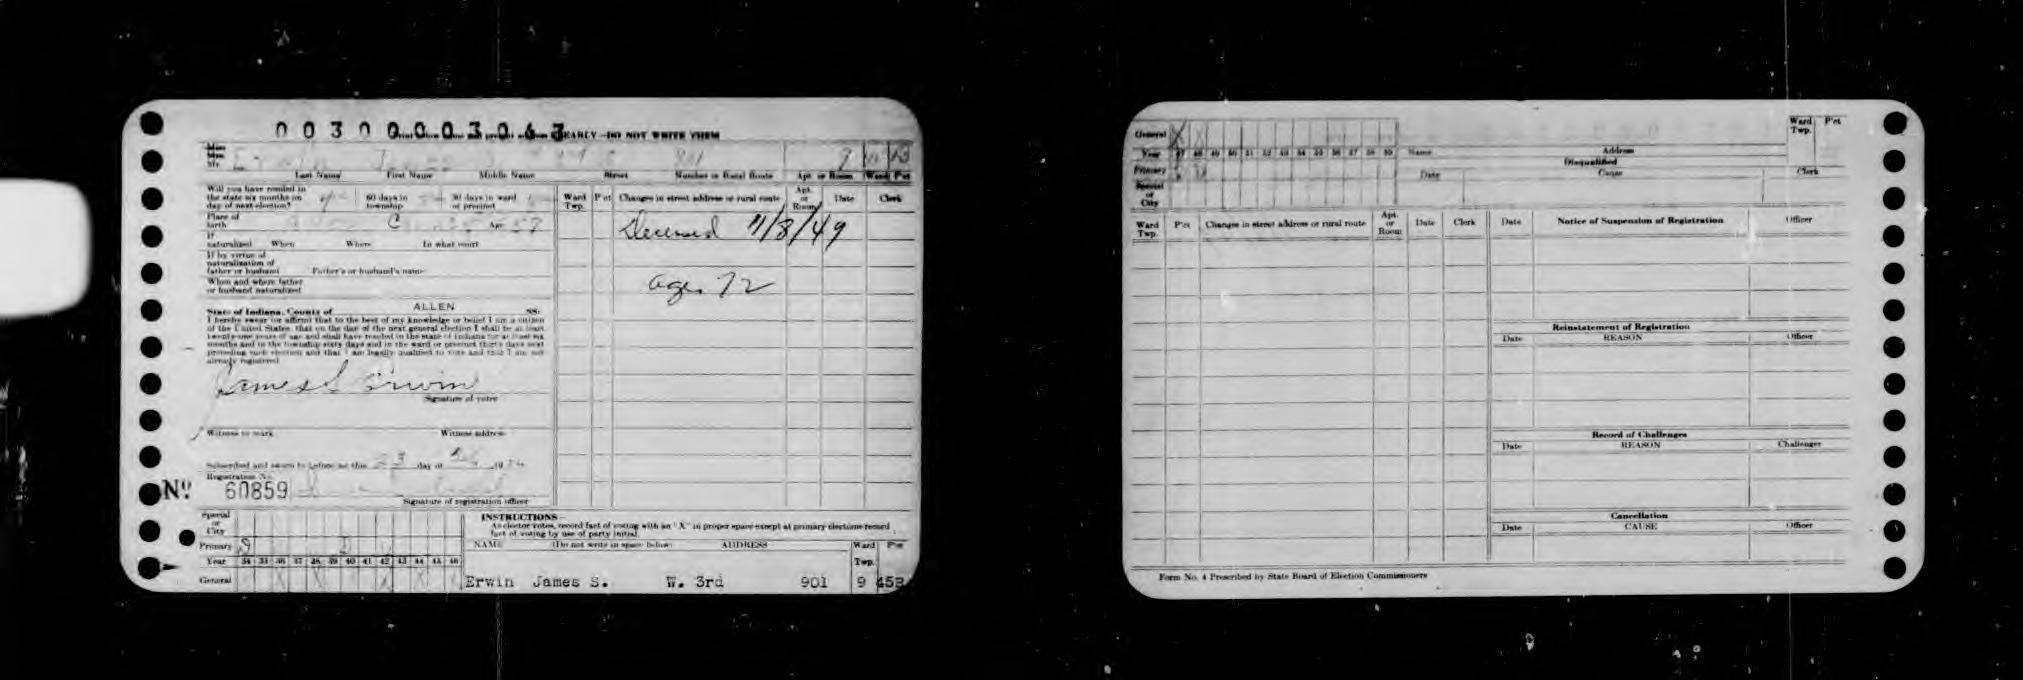 0030000003043
EARLY—DO NOT WRITE THEM
Miss
Mrs.
Mr.
Last Name First Name Middle Name Street Number or Rural Route Apt. or Room Ward Pct
Will you have resided in
the state six months on
day of next election?
60 days in
township
30 days in ward
or precinct
Place of
birth
Age 57
If
naturalized When Where In what court
If by virtue of
naturalization of
father or husband Father's or husband's name
When and where father
or husband naturalized
ALLEN
State of Indiana, County of SS:
I hereby swear (or affirm) that to the best of my knowledge or belief I am a citizen
of the United States, that on the day of the next general election I shall be at least
twenty-one years of age and shall have resided in the state of Indiana for at least six
months and in the township sixty days and in the ward or precinct thirty days next
preceding such election and that I am legally qualified to vote and that I am not
already registered.
James S Erwin
Signature of voter
Witness to mark Witness address
Subscribed and sworn to before me this 23 day of
Registration No.
No. 60859
Signature of registration officer
Ward
Twp. P'ct Changes in street address or rural route Apt.
or
Room Date Clerk
Deceased 11/8/49
age 72
Special
or
City
Primary D D
Year 34 35 36 37 38 39 40 41 42 43 44 45 46
General X X X X
INSTRUCTIONS—
As elector votes, record fact of voting with an "X" in proper space except at primary elections record
fact of voting by use of party initial.
NAME (Do not write in space below) ADDRESS Ward
Twp. Pct
Erwin James S. W. 3rd 901 9 453
General X X
Year 47 48 49 50 51 52 53 54 55 56 57 58 59 Name Address Ward
Twp. P'ct
Primary
Special
or
City
Disqualified
Date Cause Clerk
Ward
Twp. P'ct Changes in street address or rural route Apt.
or
Room Date Clerk
Date Notice of Suspension of Registration Officer
Reinstatement of Registration
Date REASON Officer
Record of Challenges
Date REASON Challenger
Cancellation
Date CAUSE Officer
Form No. 4 Prescribed by State Board of Election Commissioners